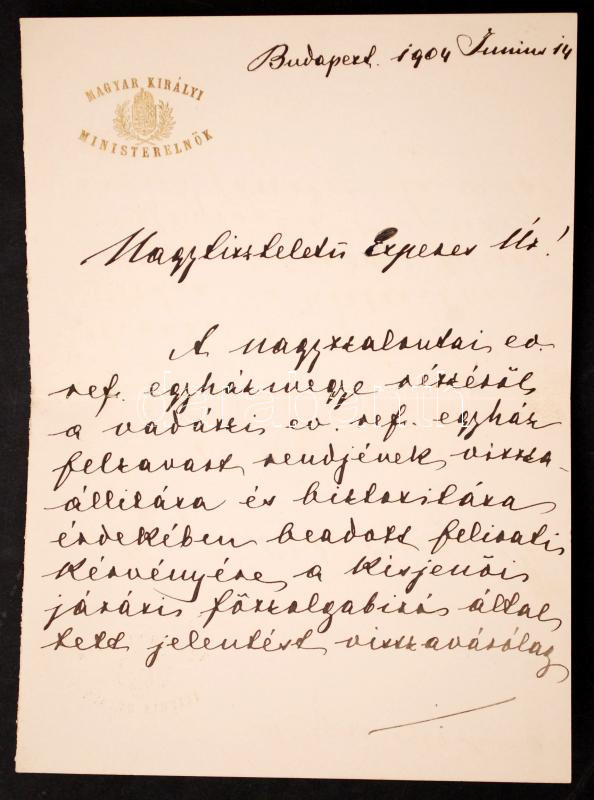 Budapest. 1904 Junius 14
MAGYAR KIRÁLYI
MINISTERELNÖK
Nagytiszteletű Esperes Úr!
A nagyszalontai ev.
ref. egyházmegye részéről
a vadászi ev. ref. egyház
felzavart rendjének vissza-
állitása és biztositása
érdekében beadott felirati
kérvényére a kisjenői
járási főszolgabiró által
tett jelentést visszavárólag